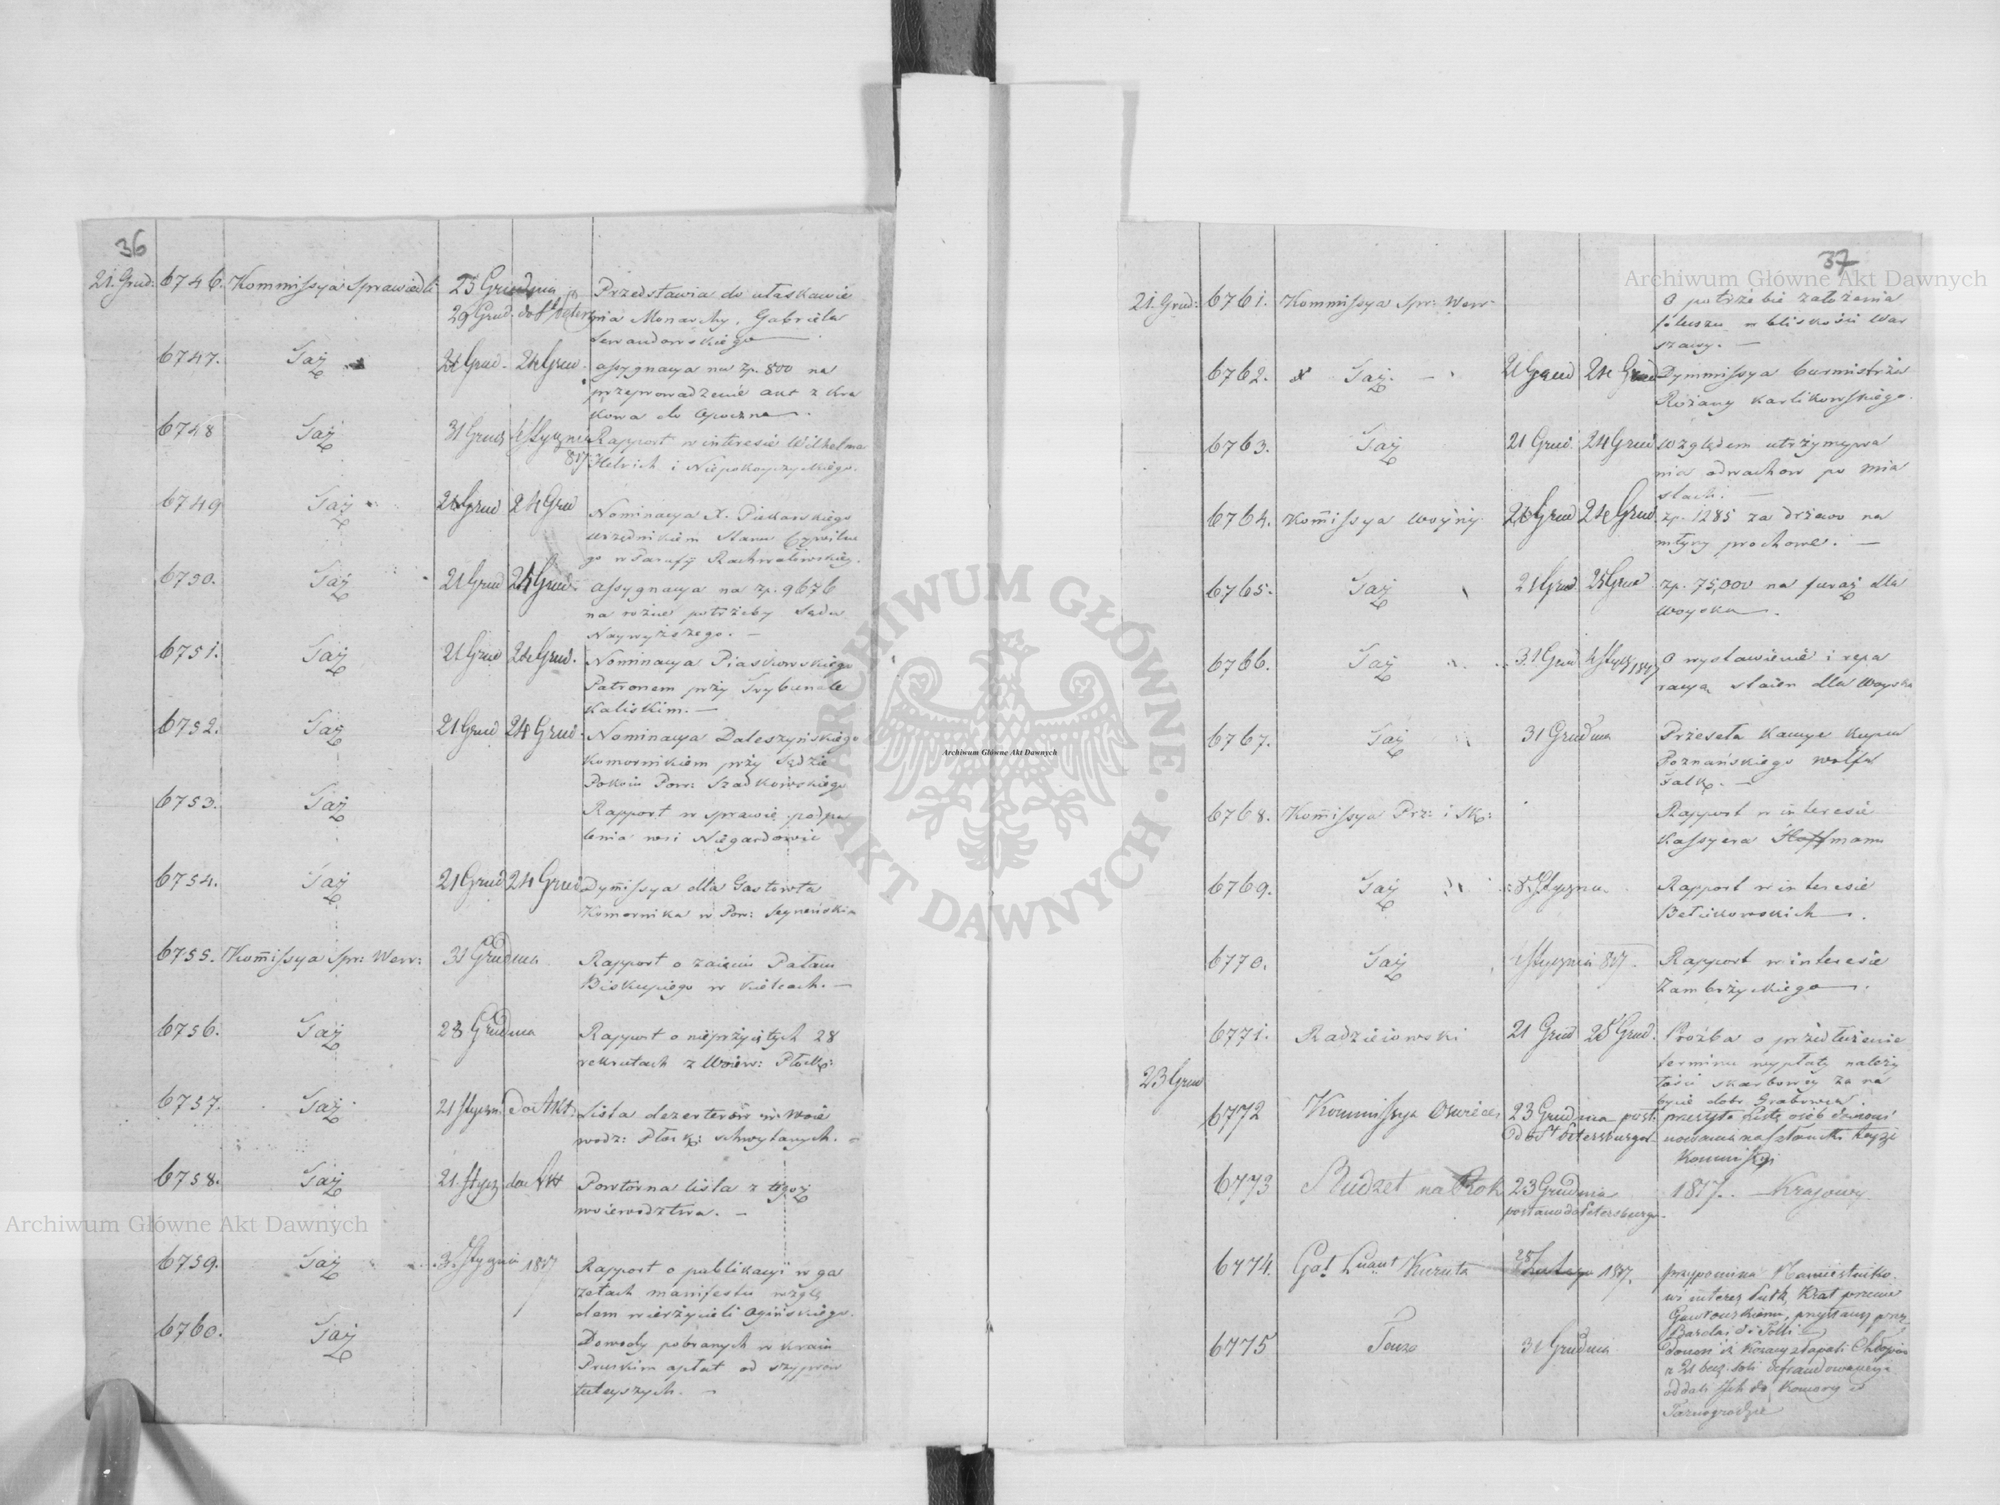 36
21. Grud: 6746. Kommissya Sprawiedli 23 Grudnia Przedstawia do ułaskawie
29 Grud. do St. Peters nia Monarchy, Gabriela
Lewandowskiego
6747. Taż 21 Grud. 24 Grud. assygnacya na zp. 800 na
przeprowadzenie akt z Kra
kowa do Opoczna
6748 Taż 31 Grud 4 Stycznia Rapport w interesie Wilhelma
817. Helrich i Niepokoyczyckiego.
6749 Taż 21 Grud 24 Grud Nominacya X. Piekarskiego
urzędnikiem Stanu Cywilne
go w Parafij Rachwałowskiey.
6750. Taż 21 Grud 24 Grud. assygnacya na zp. 9676
na różne potrzeby Sądu
Naywyższego. —
6751. Taż 21 Grud 24 Grud. Nominacya Piaskowskiego
Patronem przy Trybunale
Kaliskim. —
6752. Taż 21 Grud 24 Grud. Nominacya Daleszyńskiego
Komornikiem przy Sądzie
Pokoiu Pow: Szadkowskiego
6753. Taż Rapport w sprawie podpa
lenia wsi Niegardowie
6754. Taż 21 Grud 24 Grud. Dymissya dla Gastowta
Komornika w Pow: Seyneńskim
6755. Kommissya Spr: Wew: 31 Grudnia Rapport o zaięciu Pałacu
Biskupiego w Kielcach. —
6756. Taż 28 Grudnia Rapport o nieprzyiętych 28
rekrutach z Woiew: Płock:
6757. Taż 21 Stycz. do Akt. Lista dezerterów w Woie
wodz: Płock: schwytanych. —
6758. Taż 21. Stycz. do Akt Powtórna lista z tegoż
woiewodztwa. —
6759. Taż 3. Stycznia 1817 Rapport o publikacyi w ga
zetach manifestu wzglę
dem wierzycieli Ogińskiego.
6760. Taż Dowody pobranych w kraiu
Pruskim opłat od szyprów
tuteyszych. —
37
21. Grud: 6761. Kommissya Spr: Wew: O potrzebie założenia
foluszu w bliskości War
szawy. —
6762. Taż. — 21 Grud 24 Grud Dymmissya burmistrza
Różany Karlikowskiego.
6763. Taż 21 Grud. 24 Grud względem utrzymywa
nia odwachów po mia
stach. —
6764. Kommissya Woyny. 23 Grud 24 Grud. zp. 1285 za drzewo na
młyny prochowe. —
6765. Taż 21 Grud. 25 Grud zp. 75,000 na furaż dla
Woyska.
6766. Taż 31 Grud 4 Stycz 1817 O wystawienie i repa
racyą staien dla Woyska
6767. Taż 31 Grudnia Przesela kaucye kupca
Poznańskiego Wolfa
Falk. —
6768. Kommissya Prz: i Sk: Rapport w interesie
Kassyera Hoffmann
6769. Taż 8. Stycznia. Rapport w interesie
Bełcikowskich.
6770. Taż 4 Stycznia 817. Rapport w interesie
Zambrzyckiego.
6771. Radzieiowski 21 Grud 25 Grud. Prożba o przedłużenie
terminu wypłaty należy
tości skarbowey za na
bycie dobr. Grabowca
23 Grud
6772 Kommissya Oświec. 23 Grudnia post. przesyła Listę osób
do St. Petersburga
Kommissyi
6773 Budżet na Rok 23 Grudnia 1817. — Krajowy
posłano do Petersburga —
6774. Gał Lnant Kuruta 25 Lutego 1817. przypomina Namiestniko
wi interes
6775 Tenże 31 Grudnia donosi iż Kozacy złapali Chłopów
oddali Ich do Komory w
Tarnogrodzie
Archiwum Główne Akt Dawnych
Archiwum Główne Akt Dawnych
Archiwum Główne Akt Dawnych
ARCHIWUM GŁÓWNE · AKT DAWNYCH ·